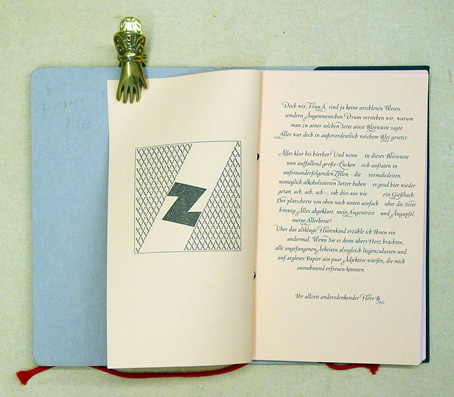 Z
Doch wir, Frau A, sind ja keine arschlosen Wesen,
sondern Augenmenschen. Drum verstehen wir, warum
man zu einer solchen Seite einst Bleiwüste sagte.
Alles war doch in außerordentlich weichem Blei gesetzt.
Alles klar bis hierher? Und wenn in dieser Bleiwüste
nun auffallend große Lücken sich auftaten in
aufeinanderfolgenden Zeilen – die vermaledeiten,
womöglich alkoholisierten Setzer haben es grad hier wieder
getan, ach, ach, ach –, sah dies aus wie ein Gießbach.
Der plätscherte von oben nach unten einfach über die Seite
hinweg. Alles abgeklärt, mein Augentrost und Augapfel,
meine Allerbeste?
Über das altkluge Hurenkind erzähle ich Ihnen ein
andermal. Wenn Sie es denn übers Herz brächten,
alle angefangenen Arbeiten alsogleich liegenzulassen und
auf argloses Papier ein paar Adjektive würfen, die mich
ausnehmend erfreuen könnten.
Ihr allzeit andersdenkender Herr B.